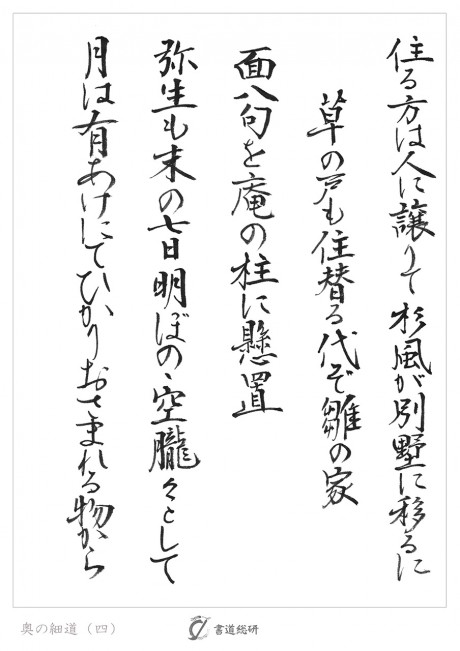 住る方は人に譲りて杉風が別墅に移るに
草の戸も住替る代ぞ雛の家
面八句を庵の柱に懸置
弥生も末の七日明ぼのゝ空朧々として
月は有あけにてひかりおさまれる物から
奥の細道（四）
書道総研